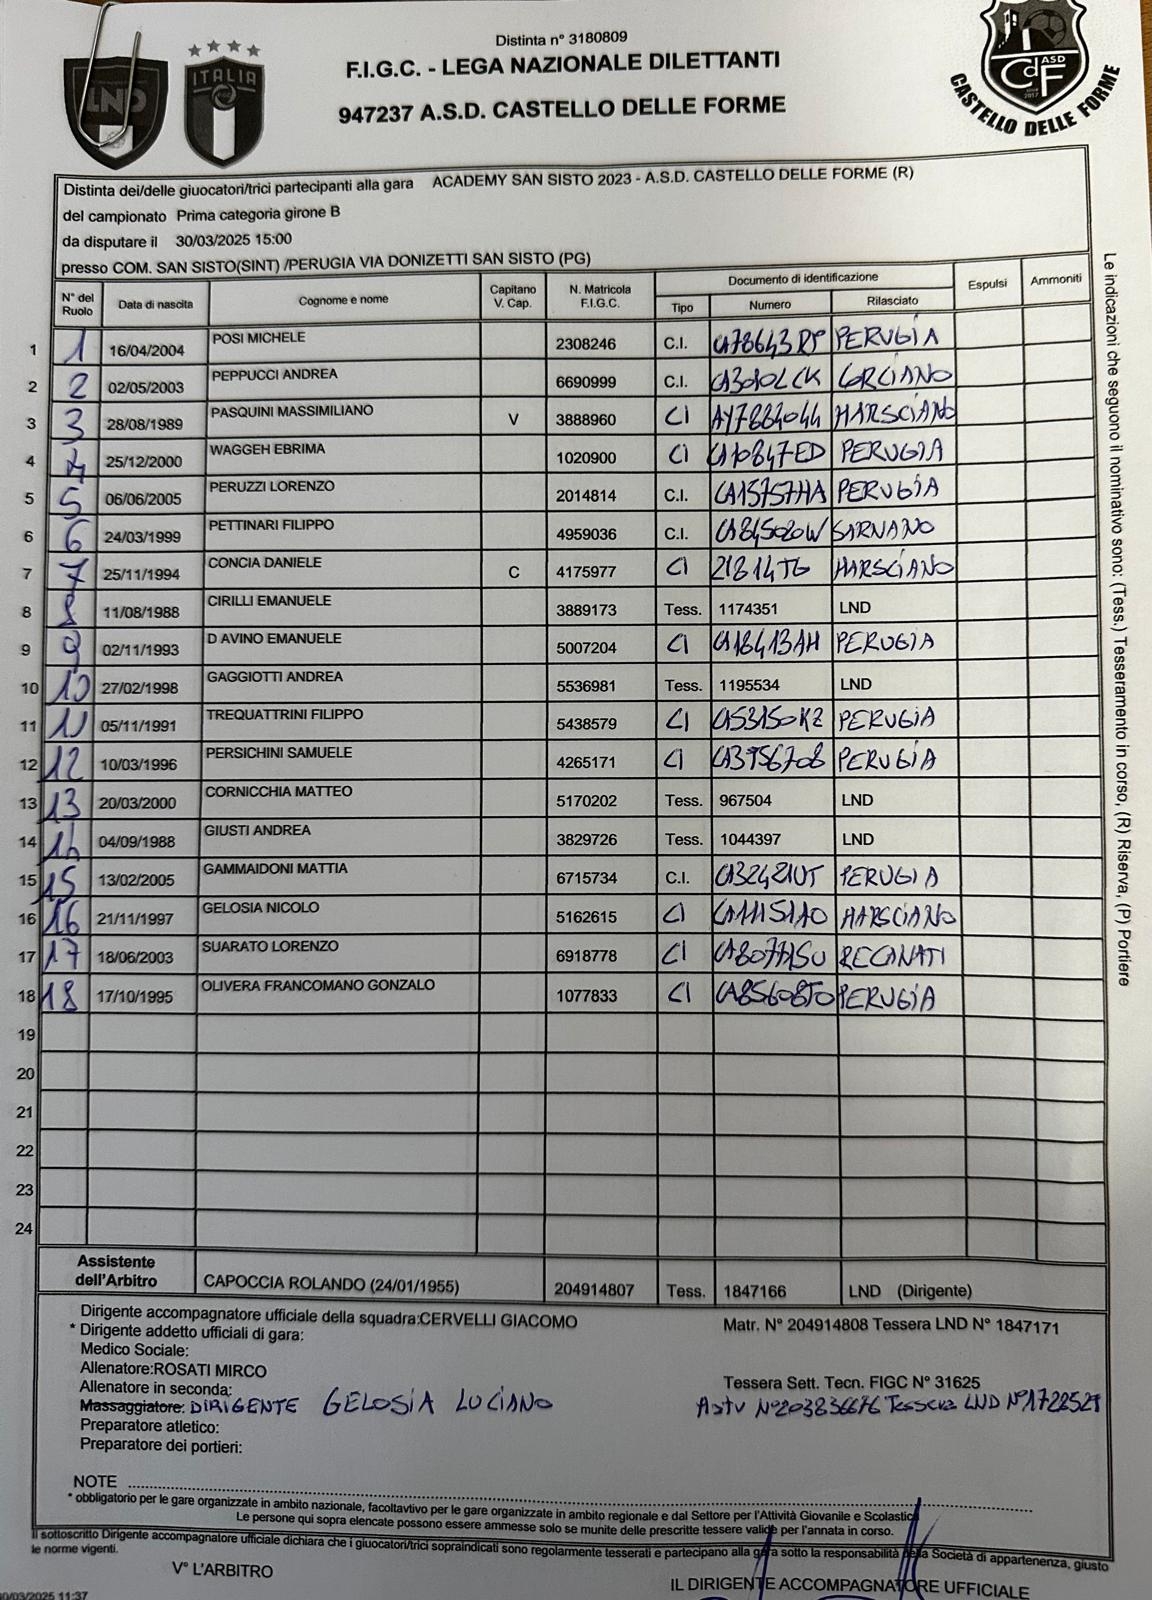 Distinta n° 3180809
F.I.G.C. - LEGA NAZIONALE DILETTANTI
947237 A.S.D. CASTELLO DELLE FORME
LND
ITALIA
ASD
CdF
CASTELLO DELLE FORME
Distinta dei/delle giuocatori/trici partecipanti alla gara ACADEMY SAN SISTO 2023 - A.S.D. CASTELLO DELLE FORME (R)
del campionato Prima categoria girone B
da disputare il 30/03/2025 15:00
presso COM. SAN SISTO(SINT) /PERUGIA VIA DONIZETTI SAN SISTO (PG)
N° del Ruolo Data di nascita Cognome e nome Capitano V. Cap. N. Matricola F.I.G.C. Documento di identificazione Espulsi Ammoniti
Tipo Numero Rilasciato
1 1 16/04/2004 POSI MICHELE 2308246 C.I. PERUGIA
2 2 02/05/2003 PEPPUCCI ANDREA 6690999 C.I. CORCIANO
3 3 28/08/1989 PASQUINI MASSIMILIANO V 3888960 CI MARSCIANO
4 4 25/12/2000 WAGGEH EBRIMA 1020900 CI CA10847ED PERUGIA
5 5 06/06/2005 PERUZZI LORENZO 2014814 C.I. CA15757HA PERUGIA
6 6 24/03/1999 PETTINARI FILIPPO 4959036 C.I. SARNANO
7 7 25/11/1994 CONCIA DANIELE C 4175977 CI MARSCIANO
8 8 11/08/1988 CIRILLI EMANUELE 3889173 Tess. 1174351 LND
9 9 02/11/1993 D AVINO EMANUELE 5007204 CI CA18413AH PERUGIA
10 10 27/02/1998 GAGGIOTTI ANDREA 5536981 Tess. 1195534 LND
11 11 05/11/1991 TREQUATTRINI FILIPPO 5438579 CI CA53150KZ PERUGIA
12 12 10/03/1996 PERSICHINI SAMUELE 4265171 CI PERUGIA
13 13 20/03/2000 CORNICCHIA MATTEO 5170202 Tess. 967504 LND
14 14 04/09/1988 GIUSTI ANDREA 3829726 Tess. 1044397 LND
15 15 13/02/2005 GAMMAIDONI MATTIA 6715734 C.I. PERUGIA
16 16 21/11/1997 GELOSIA NICOLO 5162615 CI MARSCIANO
17 17 18/06/2003 SUARATO LORENZO 6918778 CI RECANATI
18 18 17/10/1995 OLIVERA FRANCOMANO GONZALO 1077833 CI PERUGIA
19
20
21
22
23
24
Assistente dell'Arbitro CAPOCCIA ROLANDO (24/01/1955) 204914807 Tess. 1847166 LND (Dirigente)
Dirigente accompagnatore ufficiale della squadra:CERVELLI GIACOMO Matr. N° 204914808 Tessera LND N° 1847171
* Dirigente addetto ufficiali di gara:
Medico Sociale:
Allenatore:ROSATI MIRCO Tessera Sett. Tecn. FIGC N° 31625
Allenatore in seconda:
Massaggiatore: DIRIGENTE GELOSIA LUCIANO N°203836676 Tessera LND
Preparatore atletico:
Preparatore dei portieri:
NOTE
* obbligatorio per le gare organizzate in ambito nazionale, facoltavtivo per le gare organizzate in ambito regionale e dal Settore per l'Attività Giovanile e Scolastica
Le persone qui sopra elencate possono essere ammesse solo se munite delle prescritte tessere valide per l'annata in corso.
Il sottoscritto Dirigente accompagnatore ufficiale dichiara che i giuocatori/trici sopraindicati sono regolarmente tesserati e partecipano alla gara sotto la responsabilità della Società di appartenenza, giusto
le norme vigenti.
V° L'ARBITRO
IL DIRIGENTE ACCOMPAGNATORE UFFICIALE
30/03/2025 11:37
Le indicazioni che seguono il nominativo sono: (Tess.) Tesseramento in corso, (R) Riserva, (P) Portiere